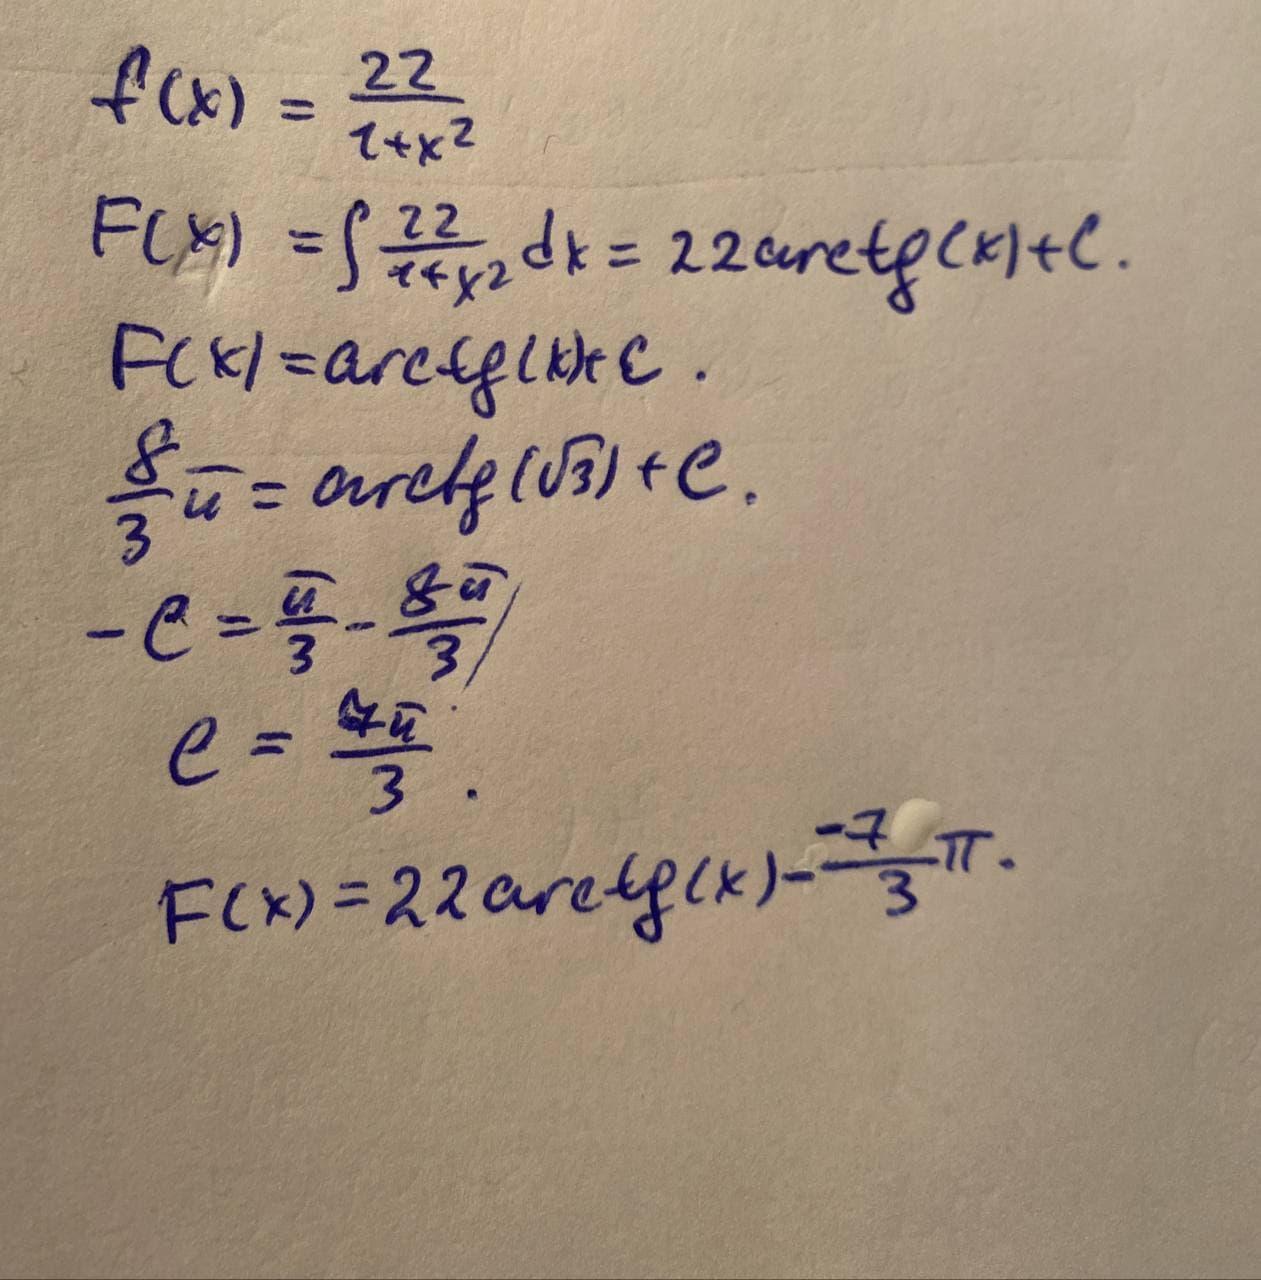 f(x) = 22/(1+x²)
F(x) = ∫ 22/(1+x²) dx = 22arctg(x)+C.
F(x) = arctg(x)+C.
8/3 π = arctg(√3)+C.
-C = π/3 - 8π/3/
C = 7π/3.
F(x) = 22arctg(x)- -7/3 π.